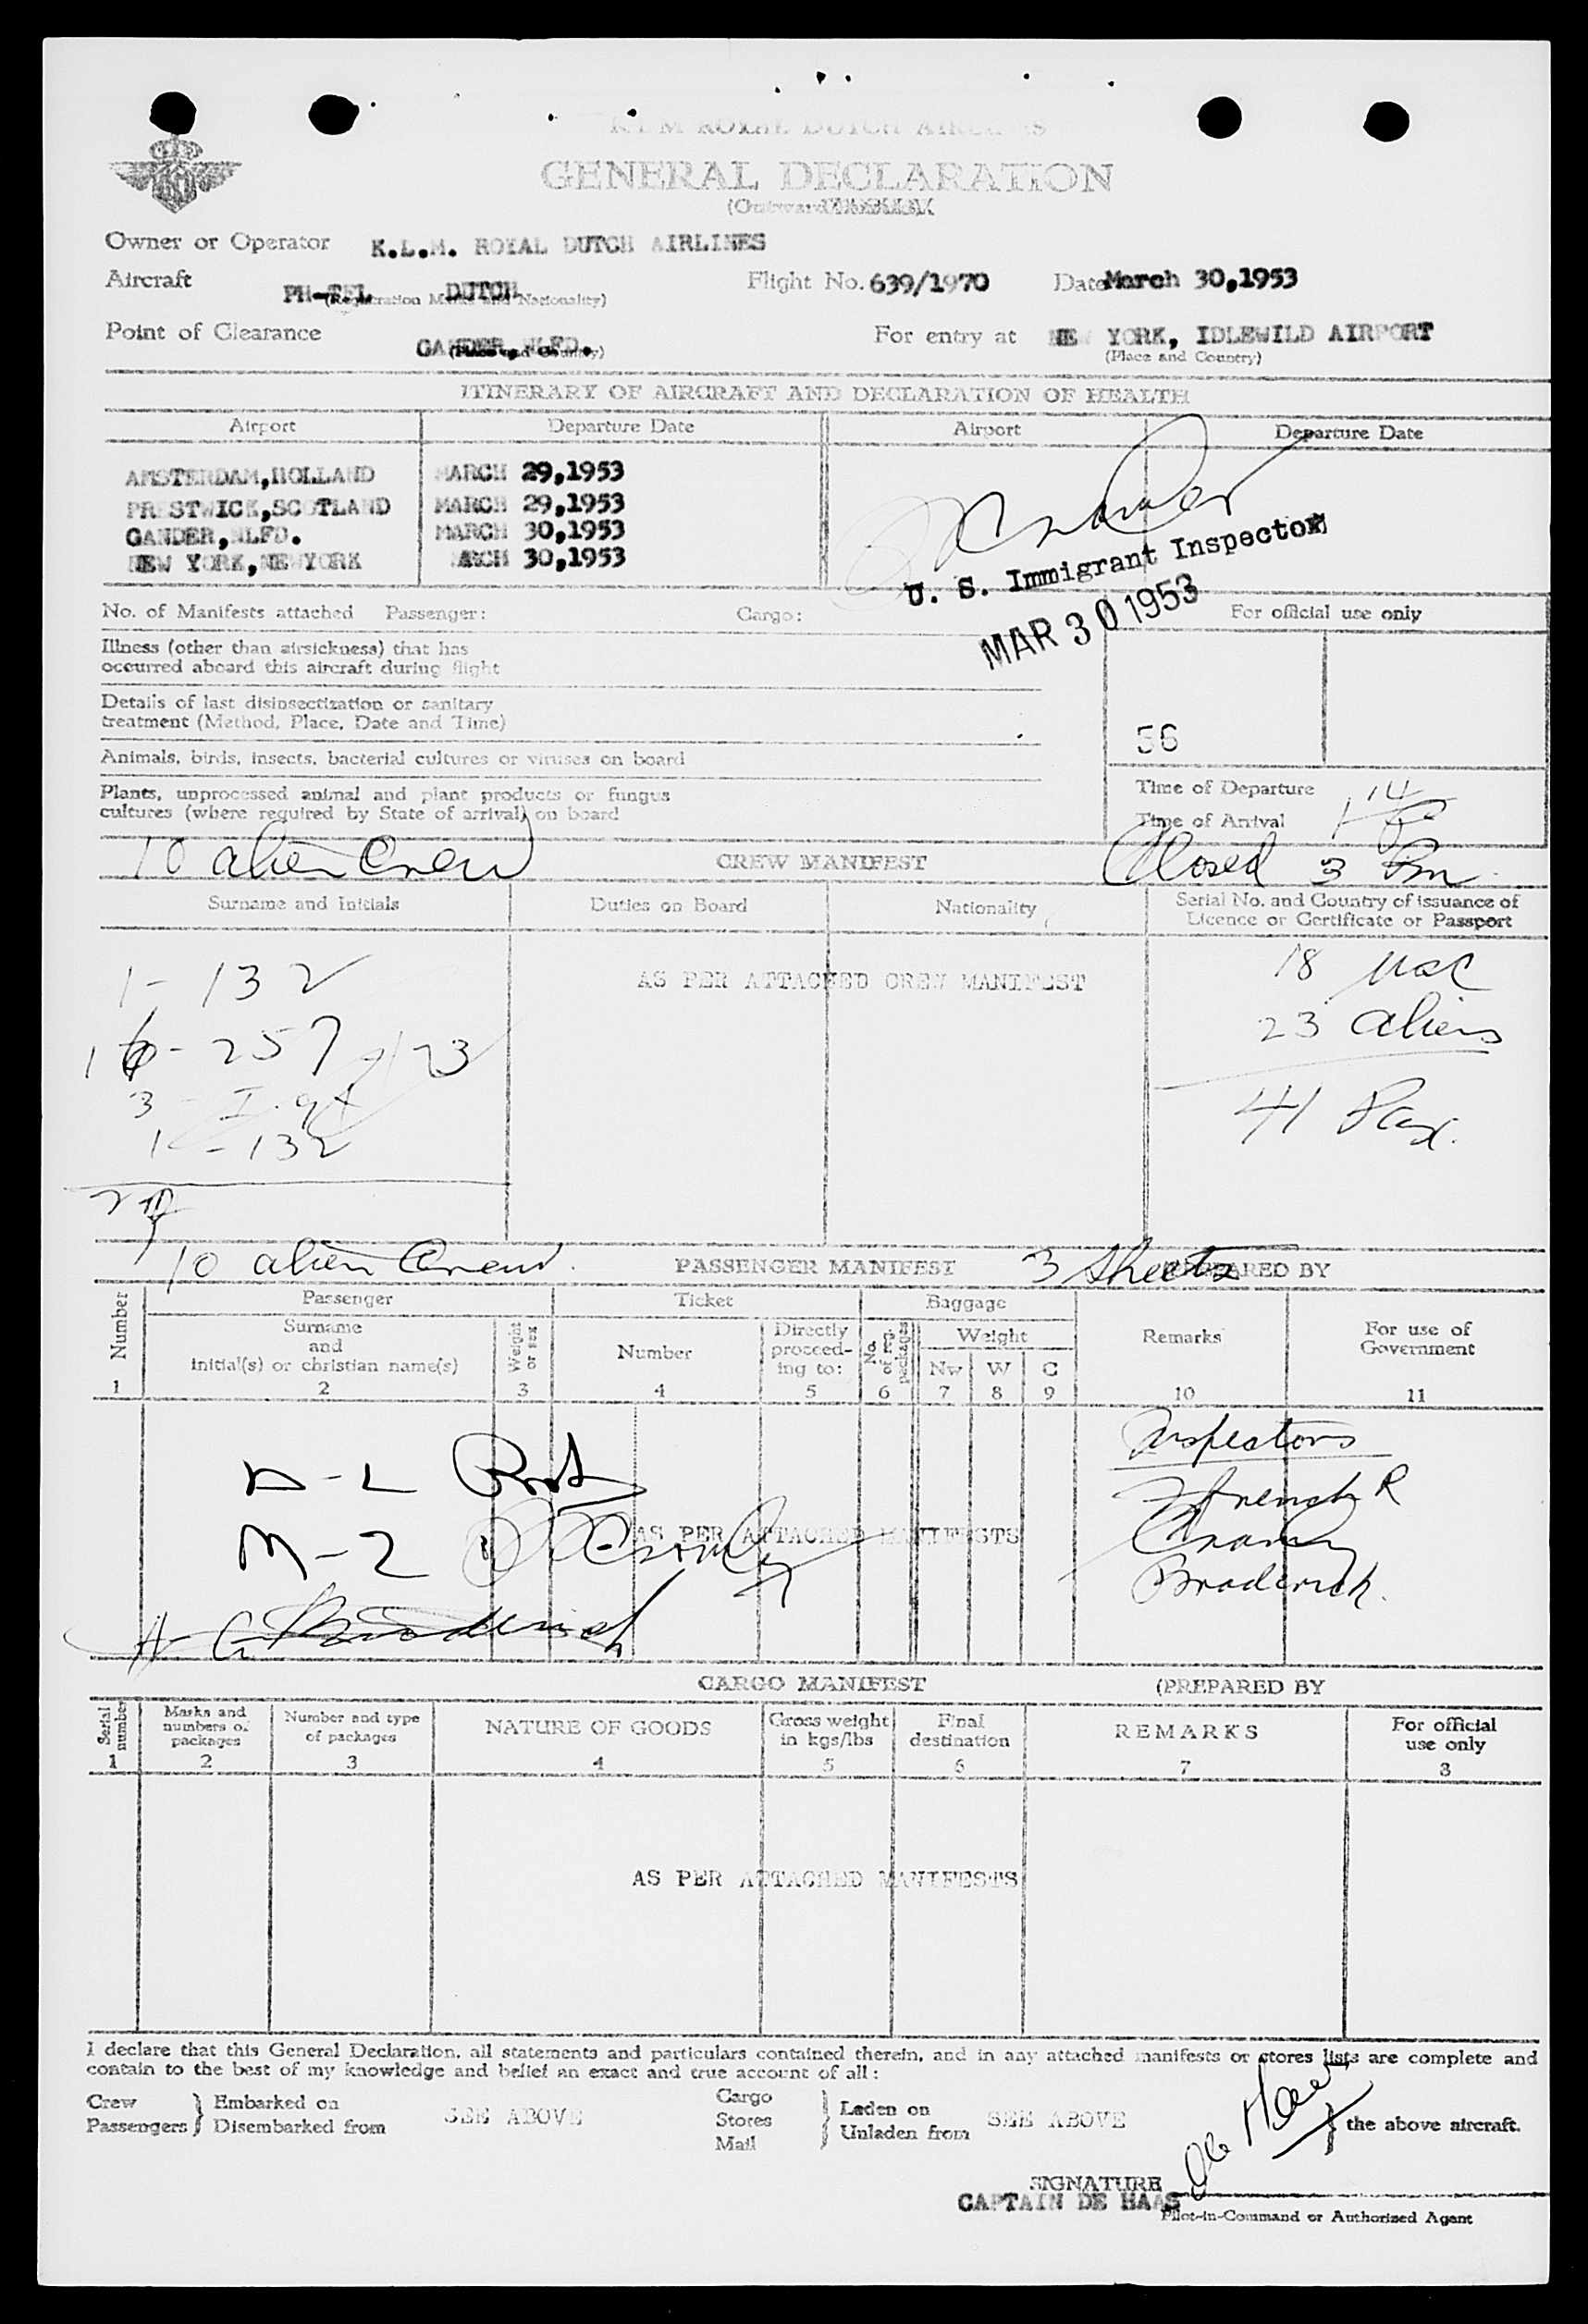 KLM ROYAL DUTCH AIRLINES
GENERAL DECLARATION
(Outward/
Owner or Operator K.L.M. ROYAL DUTCH AIRLINES
Aircraft PH-TFL DUTCH Flight No. 639/1970 Date March 30,1953
(Registration Marks and Nationality)
Point of Clearance GANDER,NLFD. For entry at NEW YORK, IDLEWILD AIRPORT
(Place and Country) (Place and Country)
ITINERARY OF AIRCRAFT AND DECLARATION OF HEALTH
Airport Departure Date Airport Departure Date
AMSTERDAM,HOLLAND MARCH 29,1953
PRESTWICK,SCOTLAND MARCH 29,1953
GANDER,NLFD. MARCH 30,1953
NEW YORK,NEWYORK MARCH 30,1953
U. S. Immigrant Inspector
MAR 30 1953
No. of Manifests attached Passenger: Cargo: For official use only
Illness (other than airsickness) that has
occurred aboard this aircraft during flight
Details of last disinsectization or sanitary
treatment (Method, Place, Date and Time)
56
Animals, birds, insects, bacterial cultures or viruses on board
Plants, unprocessed animal and plant products or fungus
cultures (where required by State of arrival) on board
Time of Departure 14
Time of Arrival
10 alien Crew CREW MANIFEST Closed 3 Pm
Surname and Initials Duties on Board Nationality Serial No. and Country of issuance of
Licence or Certificate or Passport
1 - 132 AS PER ATTACHED CREW MANIFEST 18 USC
16 - 257 23 23 aliens
3 - I-94 41 Pax.
1 - 132
10 alien Crew. PASSENGER MANIFEST 3 Sheets PREPARED BY
Number Passenger Ticket Baggage
Surname
and
initial(s) or christian name(s) Weight or sex Number Directly proceeding to: No. of reg. packages Weight Nw W C Remarks For use of Government
1 2 3 4 5 6 7 8 9 10 11
Inspectors
A-L Root French R
M-2 AS PER ATTACHED MANIFESTS
Broderick.
A-G Broderick
CARGO MANIFEST (PREPARED BY
Serial number Marks and numbers of packages Number and type of packages NATURE OF GOODS Gross weight in kgs/lbs Final destination REMARKS For official use only
1 2 3 4 5 6 7 8
AS PER ATTACHED MANIFESTS
I declare that this General Declaration, all statements and particulars contained therein, and in any attached manifests or stores lists are complete and
contain to the best of my knowledge and belief an exact and true account of all:
Crew Embarked on Cargo Laden on
Passengers Disembarked from SEE ABOVE Stores Unladen from SEE ABOVE the above aircraft.
Mail
de Haas
SIGNATURE
CAPTAIN DE HAAS
Pilot-in-Command or Authorized Agent